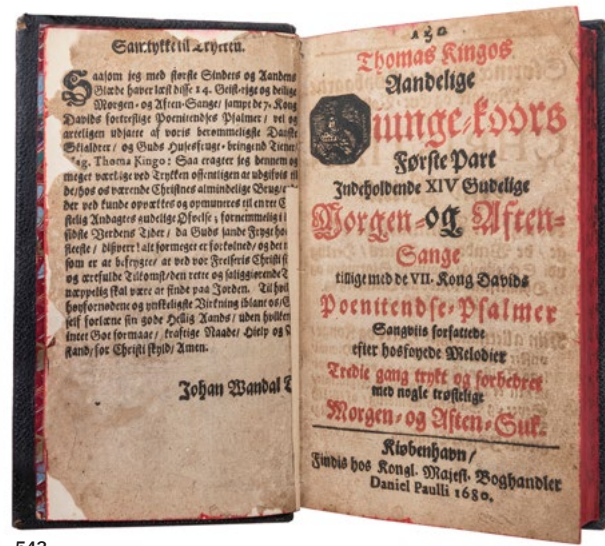 Samtykke til Trycken.
Saasom jeg med største Sindets og Aandens
Glæde haver læst disse 14. Geist-rige og deilige
Morgen- og Aften-Sange/ sampt de 7. Kong
Davids fortreflige Poenitendses Psalmer/ vel og
arteligen udsatte af voris berømmeligste Danske
Skialdrer/ og Guds Huses fruge-bringend Tiener
Mag. Thoma Kingo: Saa eragter jeg dennem og
meget værklige ved Trykken offentligen at udgifvis til
de/hos os værende Christnes almindelige Brug
der ved kunde opvækkes og opmuntres til en ret
stelig Andagtes gudelige Øfvelse; fornemmelig i
sidste Verdens Tider/ da Guds sande Frygt
fleeste/ disverr! alt formeget er forkolned/ og det
som er at befrygtes/ at ved vor Frelseris Christi
og ærefulde Tilkomst/den rette og saliggiørende
næppelig skal være at finde paa Jorden. Til
høyfornødene og ynskeligste Virkning iblant os/
self forlæne sin gode Hellig Aands/ uden hvilken
intet Got formaar/ kraftige Naade/ Hielp og
stand/for Christi skyld/ Amen.
Johan Wandal
Thomas Kingos
Aandelige
Siunge-koors
Første Part
Indeholdende XIV Gudelige
Morgen- og Aften-
Sange
tillige med de VII. Kong Davids
Poenitendse-Psalmer
Sangviis forfattede
efter hosføyede Melodier
Tredie gang trykt og forbedret
med nogle trøstelige
Morgen- og Aften-Suk.
Kiøbenhavn/
Findis hos Kongl. Majest. Boghandler
Daniel Paulli 1680.